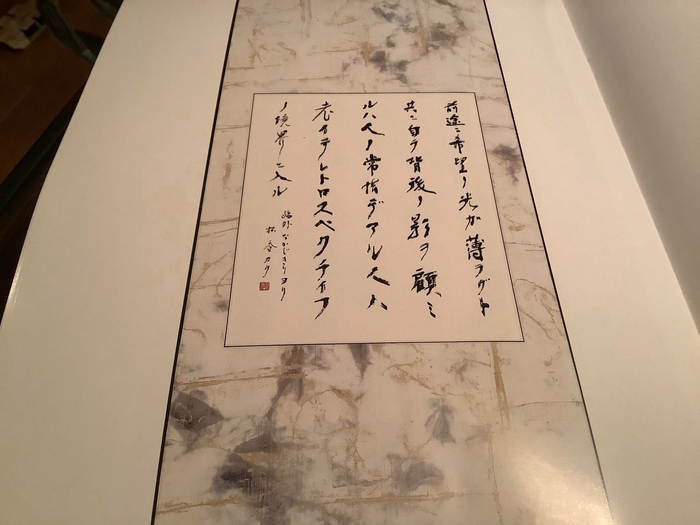 前途ニ希望ノ光ガ薄ラグト
共ニ自ラ背後ノ影ヲ顧ミ
ルハ人ノ常情デアル人ハ
老イテレトロスペクチイフ
ノ境界ニ入ル
鴎外 なかじきりヨリ
カク